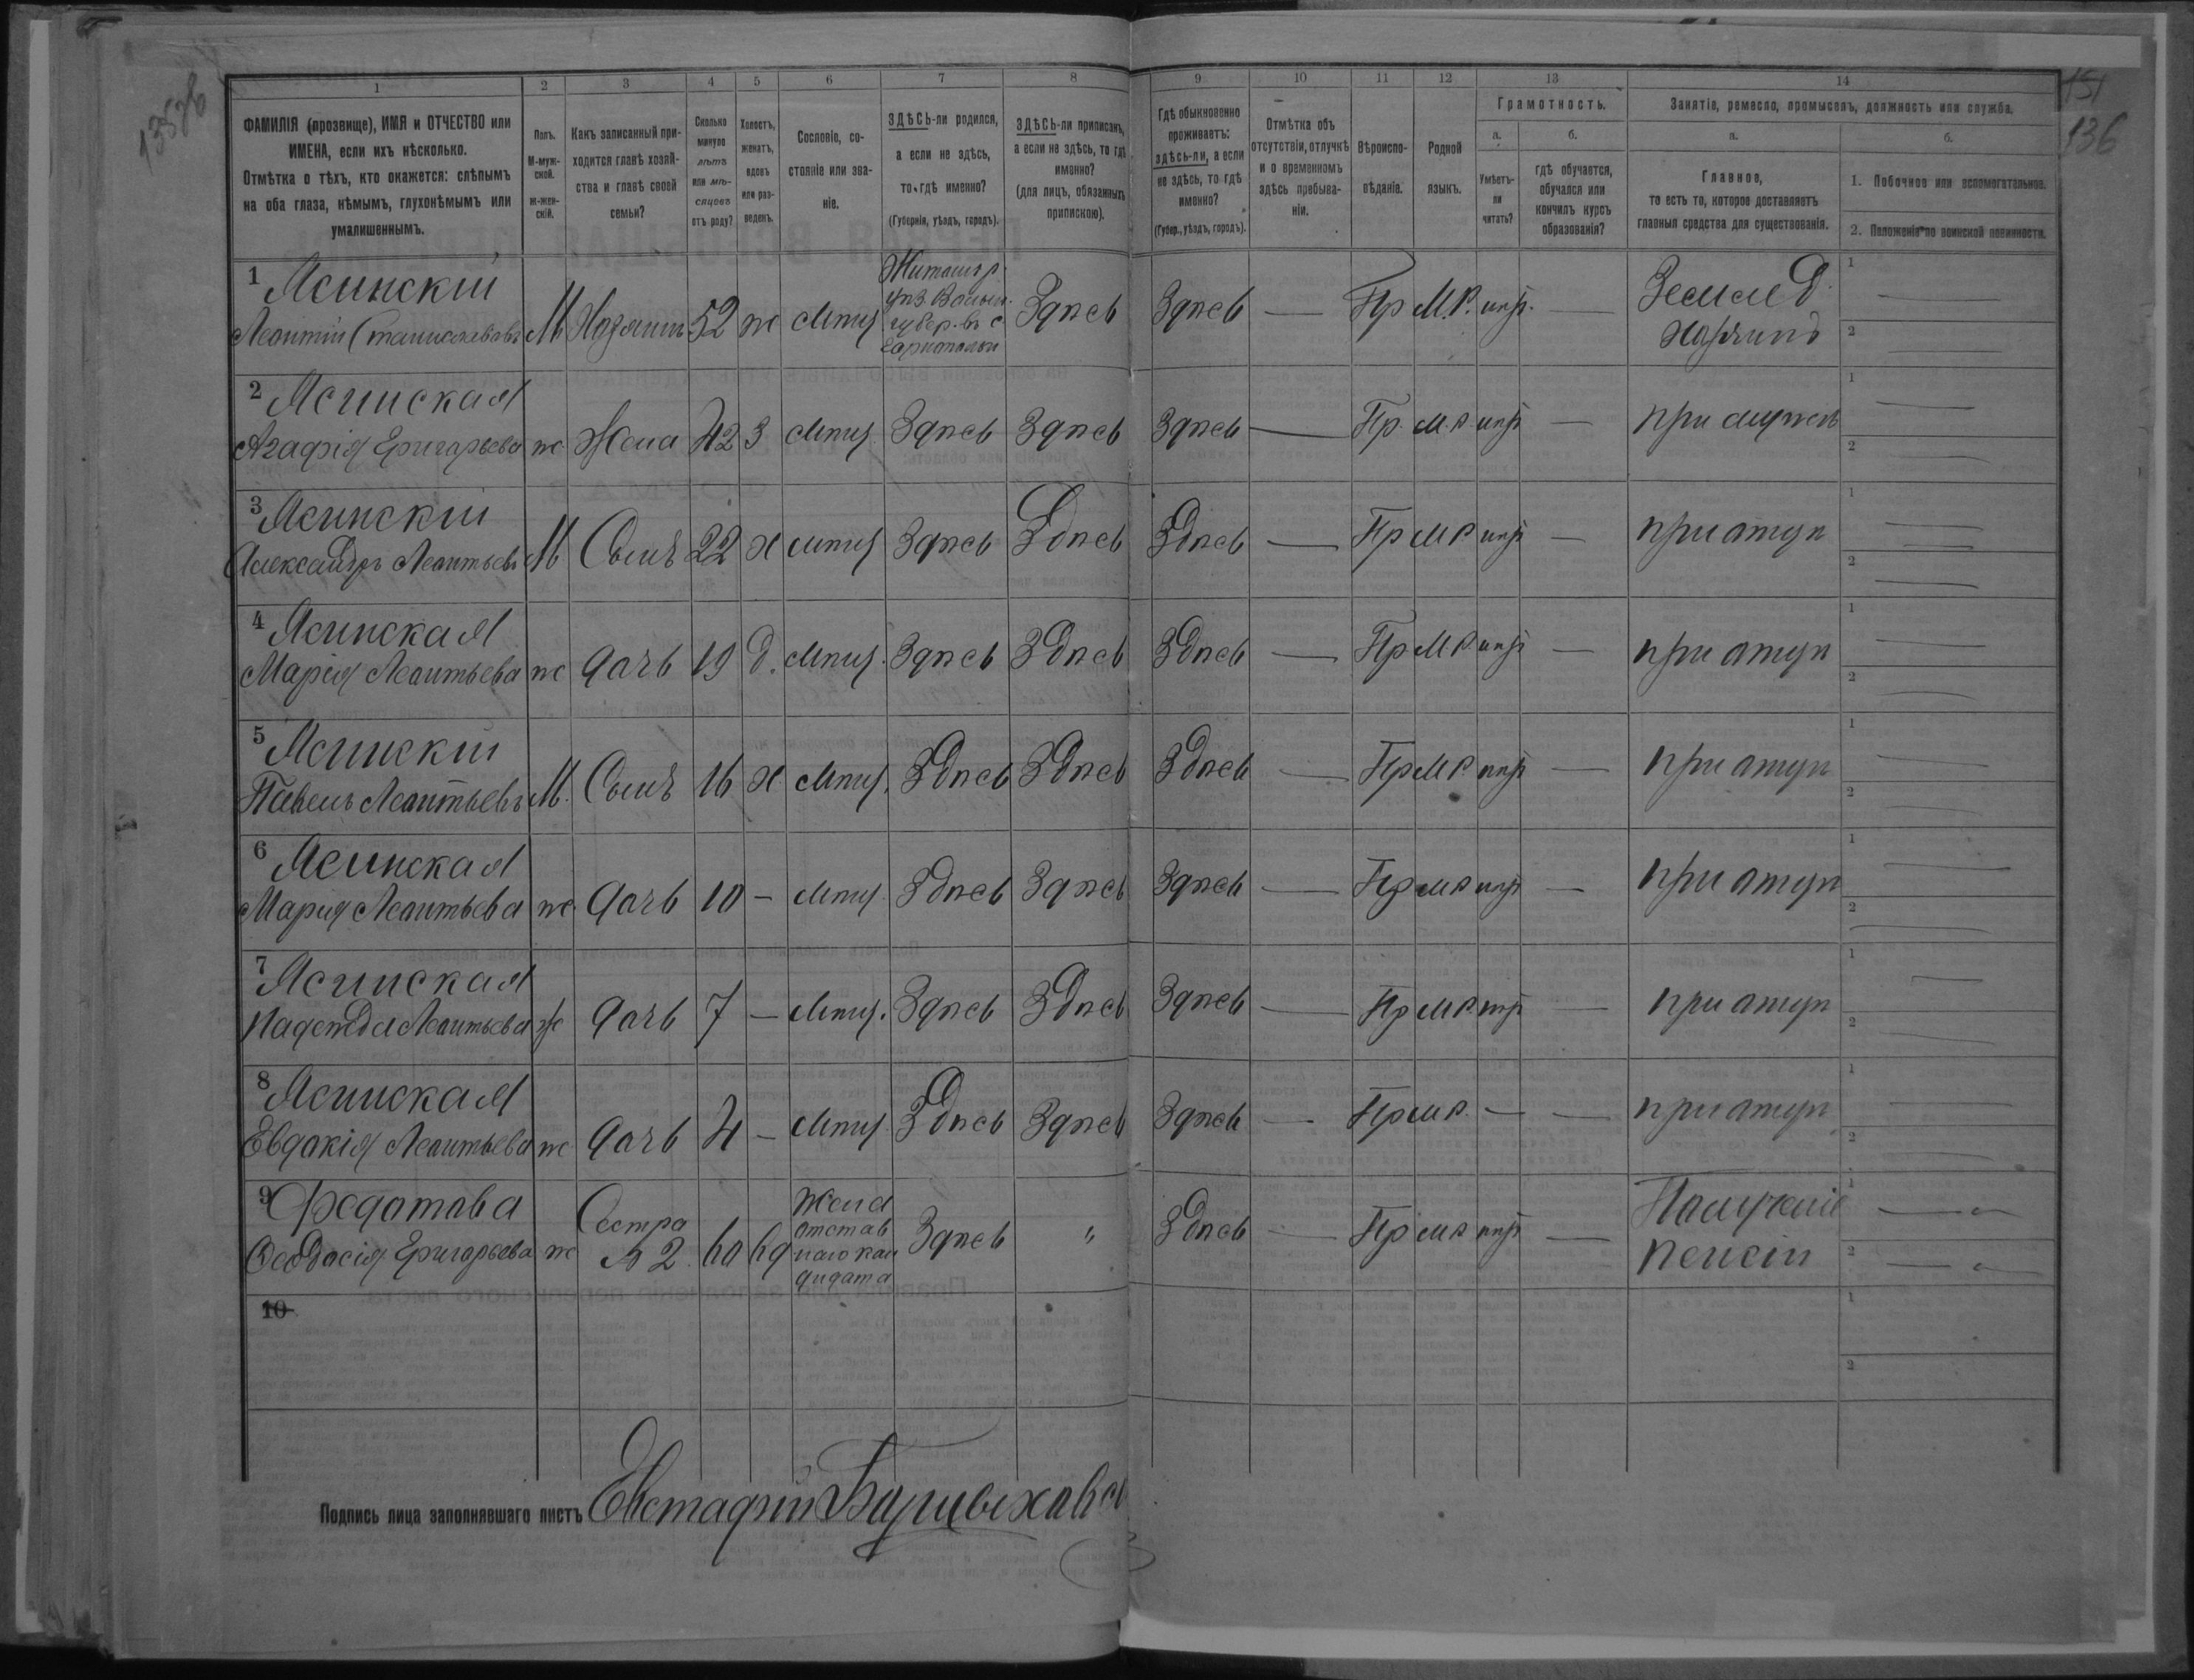 13578
151
136
1 2 3 4 5 6 7 8 9 10 11 12 13 14
ФАМИЛІЯ (прозвище), ИМЯ и ОТЧЕСТВО или ИМЕНА, если ихъ нѣсколько.
Отмѣтка о тѣхъ, кто окажется: слѣпымъ на оба глаза, нѣмымъ, глухонѣмымъ или умалишеннымъ.
Полъ. М-мужской. Ж-женскій.
Какъ записанный приходится главѣ хозяйства и главѣ своей семьи?
Сколько минуло лѣтъ или мѣсяцевъ отъ роду?
Холостъ, женатъ, вдовъ или разведенъ.
Сословіе, состояніе или званіе.
ЗДѢСЬ-ли родился, а если не здѣсь, то гдѣ именно?
(Губернія, уѣздъ, городъ).
ЗДѢСЬ-ли приписанъ, а если не здѣсь, то гдѣ именно?
(для лицъ, обязанныхъ припиской).
Гдѣ обыкновенно проживаетъ: здѣсь-ли, а если не здѣсь, то гдѣ именно?
(Губер., уѣздъ, городъ).
Отмѣтка объ отсутствіи, отлучкѣ и о временномъ здѣсь пребываніи.
Вѣроисповѣданіе.
Родной языкъ.
Грамотность.
а. Умѣетъ-ли читать?
б. гдѣ обучается, обучался или кончилъ курсъ образованія?
Занятіе, ремесло, промыселъ, должность или служба.
а. Главное, то есть то, которое доставляетъ главныя средства для существованія.
б. 1. Побочное или вспомогательное.
2. Положеніе по воинской повинности.
1 Ясинскій
Леонтій Станиславовъ М Хозяинъ 52 ж мѣщ Житомір. уѣз. Волын. губер. въ с. Здѣсь Здѣсь — Пр М.Р. нѣт. — Землед. Хозяинъ
2 Ясинская
Агафія Григорьева ж Жена 42 З мѣщ Здѣсь Здѣсь Здѣсь — Пр. М.Р. нѣт — при мужѣ
3 Ясинскій
Александръ Леонтьевъ М Сынъ 22 Х мѣщ Здѣсь Здѣсь Здѣсь — Пр М Р нѣт — при отцѣ
4 Ясинская
Марія Леонтьева ж дочь 19 д. мѣщ. Здѣсь Здѣсь Здѣсь — Пр М Р нѣт — при отцѣ
5 Ясинскій
Павелъ Леонтьевъ М. Сынъ 16 Х мѣщ. Здѣсь Здѣсь Здѣсь — Пр М Р нѣт — при отцѣ
6 Ясинская
Мария Леонтьева ж дочь 10 — мѣщ. Здѣсь Здѣсь Здѣсь — Пр М Р нѣт — при отцѣ
7 Ясинская
Надежда Леонтьева ж дочь 7 — мѣщ. Здѣсь Здѣсь Здѣсь — Пр М Р нѣт — при отцѣ
8 Ясинская
Евдокія Леонтьева ж дочь 4 — мѣщ. Здѣсь Здѣсь Здѣсь — Пр М Р. — — при отцѣ
9 Федотова
Феодосія Григорьева ж Сестра № 2 60 вд Жена отставнаго кандидата Здѣсь " Здѣсь — Пр М Р нѣт — Получаніе пенсіи
10
Подпись лица заполнявшаго листъ Евстафій